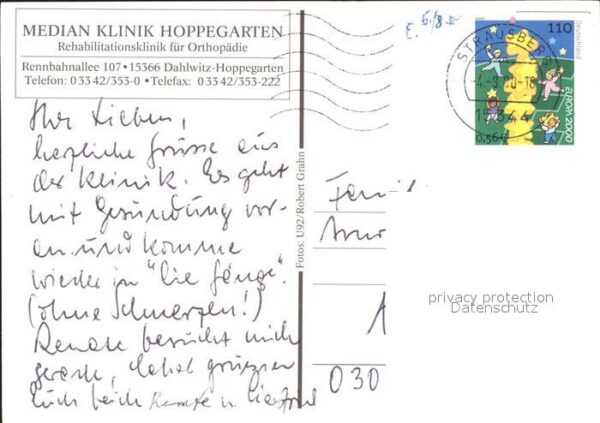 MEDIAN KLINIK HOPPEGARTEN
Rehabilitationsklinik für Orthopädie
Rennbahnallee 107 • 15366 Dahlwitz-Hoppegarten
Telefon: 0 33 42/353-0 • Telefax: 0 33 42/353-222
Ihr Lieben,
herzliche Grüsse aus
der Klinik. Es geht
mit Gesundung vor-
an und komme
wieder in "die Gänge".
(ohne Schmerzen!)
Renate besucht mich
gerade,
Euch beide Renate u.
Fotos: U92/Robert Grahn
E. 5./8.
110
Deutschland
EUROPA 2000
0,56
STRAUSBERG
15344
Fam
030
privacy protection
Datenschutz